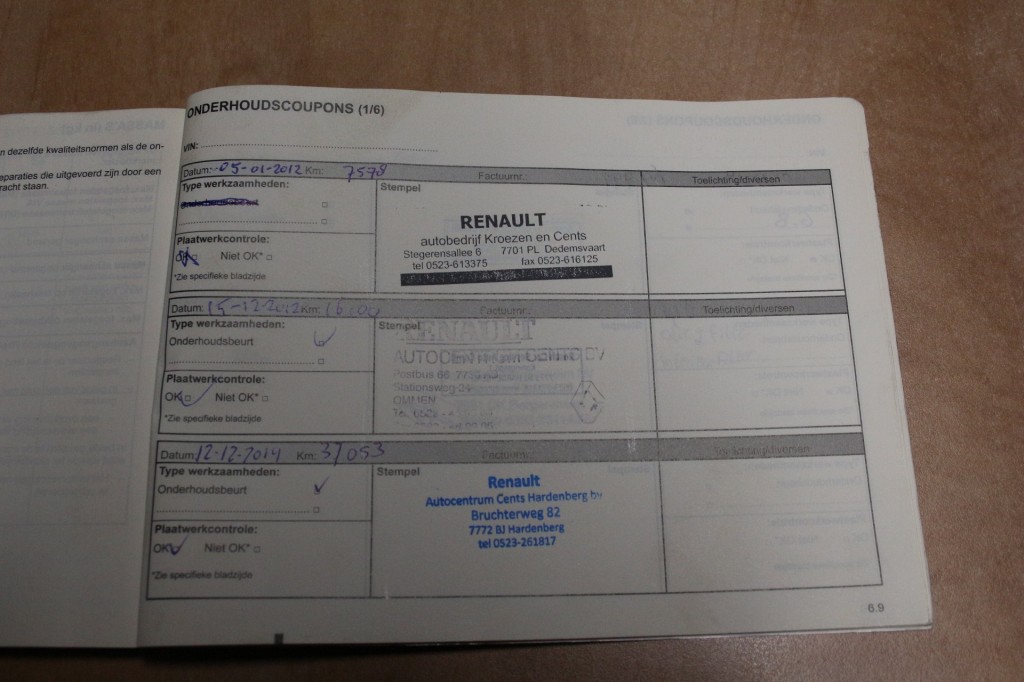 n dezelfde kwaliteitsnormen als de on-
eparaties die uitgevoerd zijn door een
racht staan.
ONDERHOUDSCOUPONS (1/6)
VIN:
Datum: 05-01-2012 Km: 7578 Factuurnr.: Toelichting/diversen
Type werkzaamheden: Stempel
RENAULT
autobedrijf Kroezen en Cents
Stegerensallee 6 7701 PL Dedemsvaart
tel 0523-613375 fax 0523-616125
Plaatwerkcontrole:
OK Niet OK*
*Zie specifieke bladzijde
Datum: 15-12-2012 Km: Factuurnr.: Toelichting/diversen
Type werkzaamheden: Stempel
Onderhoudsbeurt
RENAULT
AUTOCENTRUM CENTS BV
Postbus 66
Stationsweg
OMMEN
Plaatwerkcontrole:
OK Niet OK*
*Zie specifieke bladzijde
Datum: 12-12-2014 Km: 37053 Factuurnr.: Toelichting/diversen
Type werkzaamheden: Stempel
Onderhoudsbeurt
Renault
Autocentrum Cents Hardenberg bv
Bruchterweg 82
7772 BJ Hardenberg
tel 0523-261817
Plaatwerkcontrole:
OK Niet OK*
*Zie specifieke bladzijde
6.9